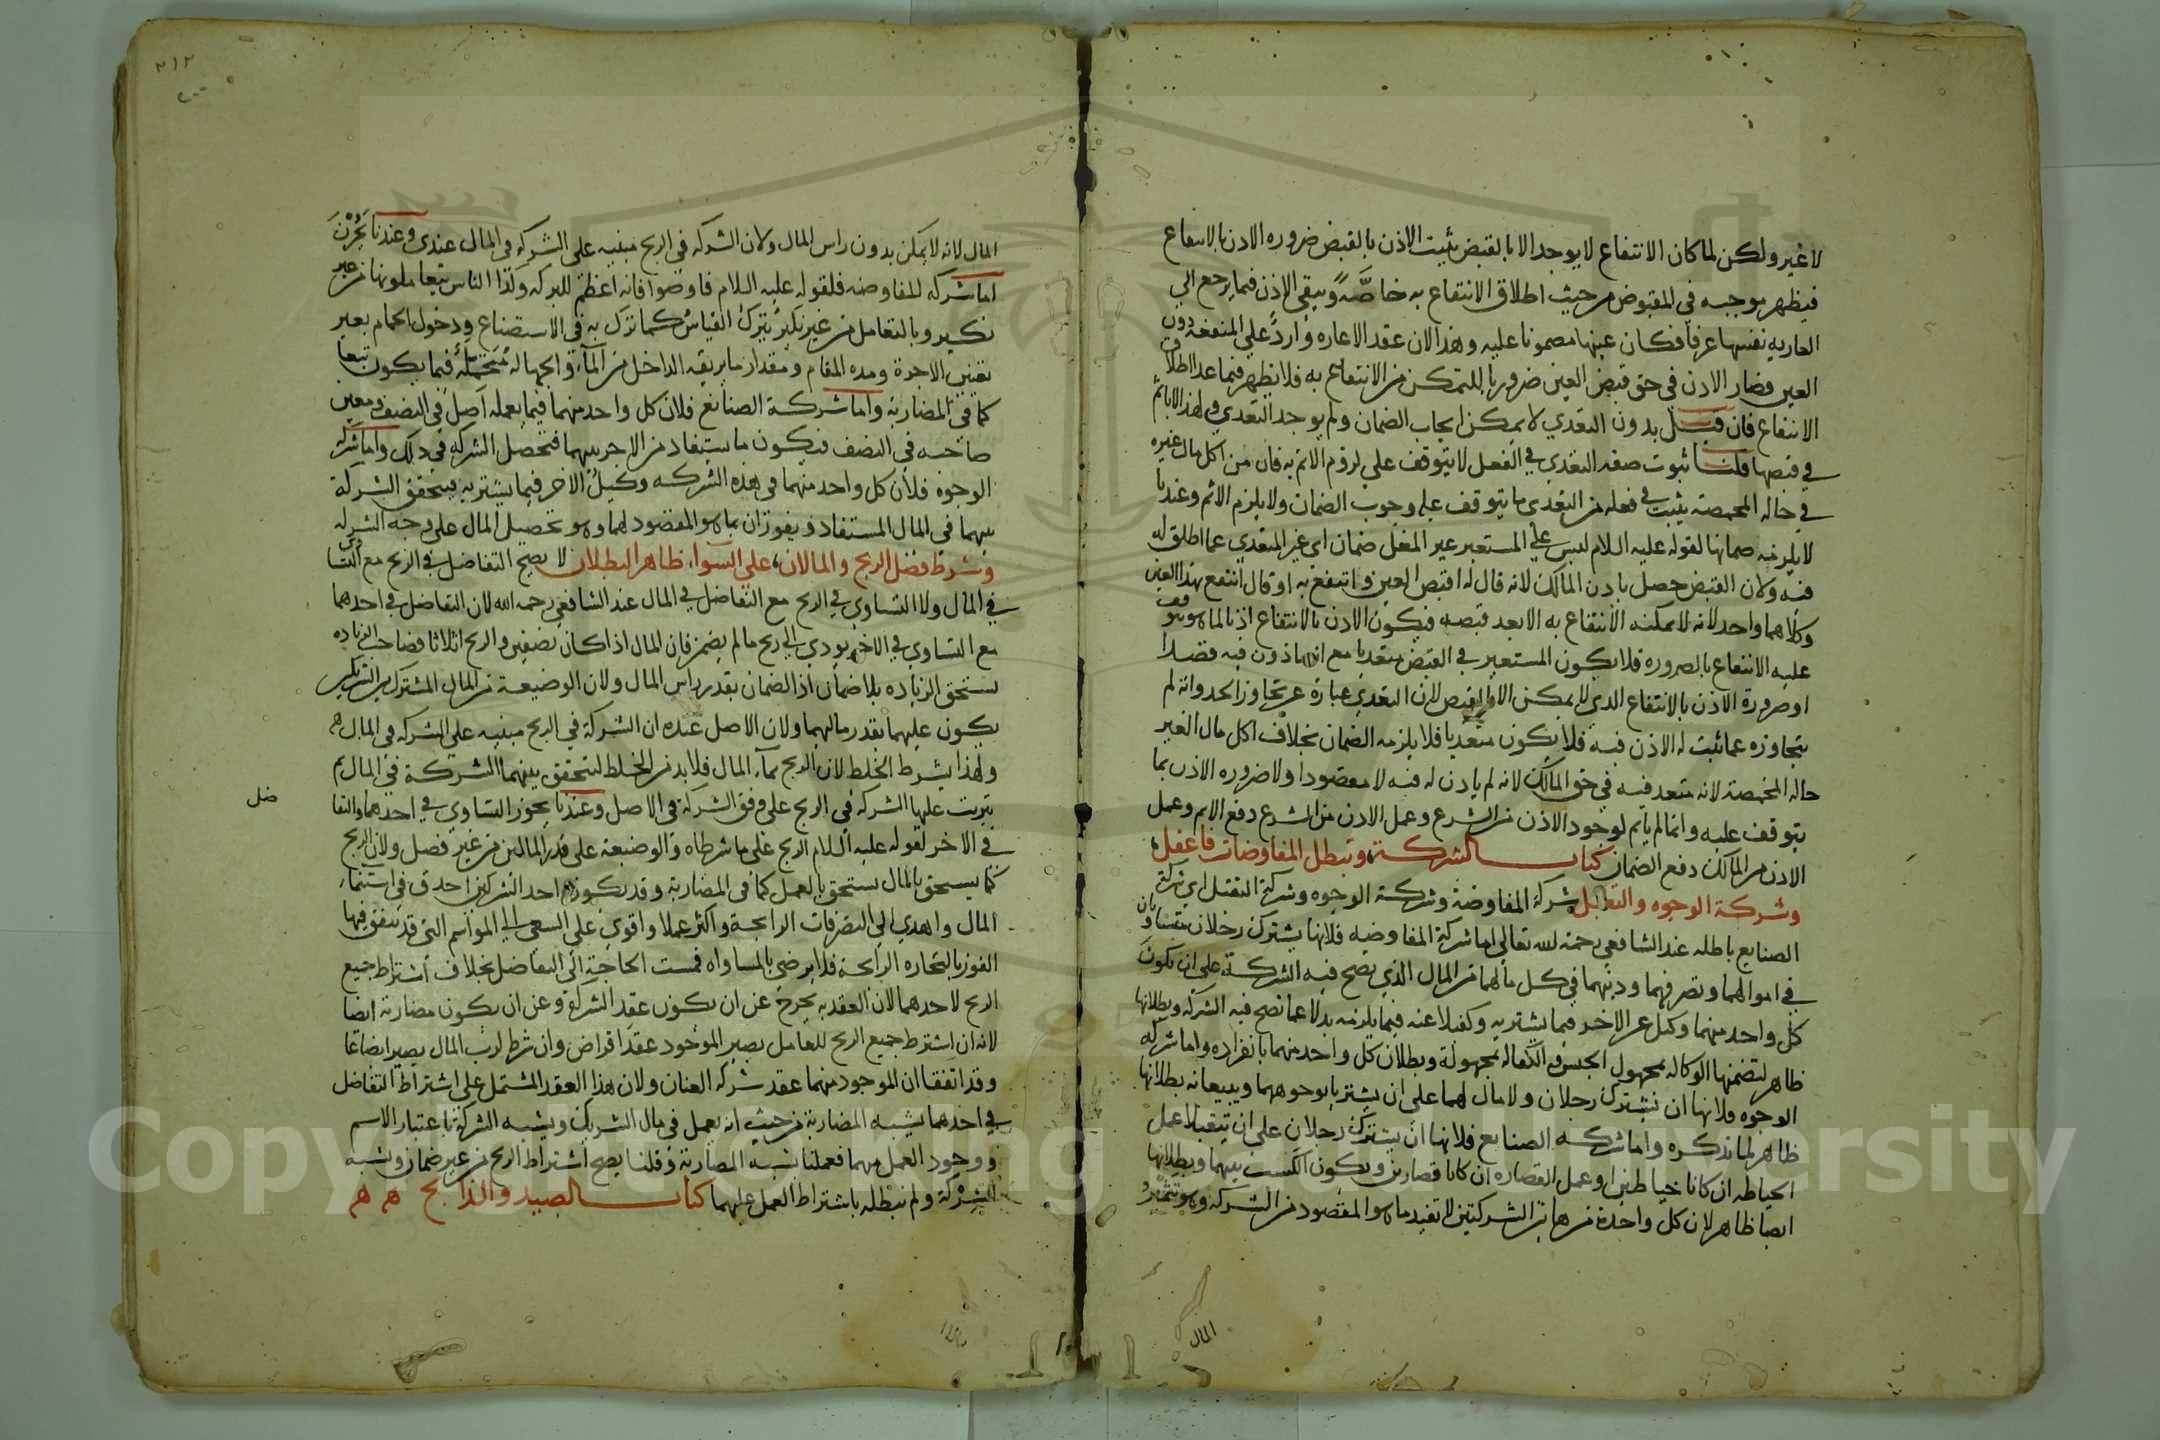 لا غير ولكن لما كان الانتفاع لا يوجد الا بالقبض يثبت الاذن بالقبض ضروره الاذن بالانتفاع
فيظهر موجبه في المقبوض من حيث اطلاق الانتفاع به خاصّةً ويبقى الاذن فيما يرجع الي
العاريه نفسها عرفا فكان عينها مضمونا عليه وهذا لان عقد الاعاره وارد على المنفعه دون
العين فصار الاذن في حق قبض العين ضروريا للتمكن من الانتفاع به فلا يظهر فيما عدا اطلاق
الانتفاع فان قيل بدون التعدي لا يمكن ايجاب الضمان ولم يوجد التعدي ولهذا لا ياثم
في قبضها قلنا ثبوت صفه التعدي في الفعل لا يتوقف علي لزوم الاثم به فان من اكل مال غيره
في حاله المخمصة يثبت في فعله من التعدي ما يتوقف عليه وجوب الضمان ولا يلزم الاثم وعندنا
لا يلزمه ضمانها لقوله عليه السلام ليس علي المستعير غير المغل ضمان اي غير المتعدي عما اطلق له
فيه ولان القبض حصل باذن المالك لانه قال له اقبض العين وانتفع به او قال انتفع بهذا العين
وكلاهما واحد لانه لا يمكنه الانتفاع به الا بعد قبضه فيكون الاذن بالانتفاع اذنا لما هو يتوقف
عليه الانتفاع بالضروره فلا يكون المستعير في القبض متعديا مع انه ماذون فيه قصدا
او ضرورة الاذن بالانتفاع الذي لا يمكن الا بالقبض لان التعدي عبارة عن تجاوز الحد وانه لم
يتجاوزه عما ثبت له الاذن فيه فلا يكون متعديا فلا يلزمه الضمان بخلاف اكل مال الغير
حاله المخمصة لانه متعد فيه في حق المالك لانه لم ياذن له فيه لا مقصودا ولا ضروره الاذن بما
يتوقف عليه وانما لم ياثم لوجود الاذن من الشرع وعمل الاذن من الشرع دفع الاثم وعمل
الاذن من المالك دفع الضمان كتاب الشركة، وتبطل المفاوضات فاعقل،
وشركة الوجوه والتقبل شركة المفاوضة وشركة الوجوه وشركة التقبل اي شركة
الصنايع باطله عند الشافعي رحمة الله تعالي اما شركة المفاوضه فلانها يشترك رجلان متساويان
في اموالهما وتصرفهما ودينهما في كل مالهما من المال الذي يصح فيه الشركة على ان يكون
كل واحد منهما وكيل عن الاخر فيما يشتريه وكفيلا عنه فيما يلزمه بدلا عما تصح فيه الشركه وبطلانها
ظاهر لتضمنها الوكاله بمجهول الجنس والكفاله بمجهولة وبطلان كل واحد منهما بانفراده واما شركه
الوجوه فلانها ان يشترك رجلان ولا مال لهما على ان يشتريا بوجوههما ويبيعانه بطلانها
ظاهر لما نذكره واما شركه الصنايع فلانها ان يشترك رجلان على ان يتقبلا عمل
الخياطه ان كانا خياطين او عمل القصاره ان كانا قصارين ويكون الكسب بينهما وبطلانها
ايضا ظاهر لان كل واحدة من هاتين الشركتين لا تفيد ما هو المقصود من الشركه وهو تثمير
المال
٢١٢
المال لانه لا يمكن بدون راس المال ولان الشركه في الربح مبنيه على الشركه في المال عندي وعندنا يَجُزْنَ
اما شركه المفاوضه فلقوله عليه السلام فاوضوا فانه اعظم للبركه ولذا الناس يتعاملونها من غير
نكير وبالتعامل من غير نكير يترك القياس كما ترك به في الاستصناع ودخول الحمام بغير
تعيين الاجرة ومده المقام ومقدار ما يريقه الداخل من المآء والجهالة مُتَحَمَّلَةٌ فيما يكون تبعا
كما في المضاربة واما شركة الصنايع فلان كل واحد منهما فيما يعمله اصل في النصف ومعين
صاحبه في النصف فيكون ما يستفاد من الاجر بينهما فتحصل الشركه في ذلك واما شركه
الوجوه فلان كل واحد منهما في هذه الشركه وكيلُ الاخر فيما يشتريه فيتحقق الشركة
بينهما في المال المستفاد ويفوزان بما هو المقصود لهما وهو تحصيل المال على وجه الشركه
وشرط فضل الربح والمالان، على السوآء، ظاهر البطلان لا يصح التفاضل في الربح مع التساوي
في المال ولا التساوي في الربح مع التفاضل في المال عند الشافعي رحمه الله لان التفاضل في احدهما
مع التساوي في الاخر يودي الي ربح ما لم يضمن فان المال اذا كان نصفين والربح اثلاثا فصاحب الزياده
يستحق الزياده بلا ضمان اذ الضمان بقدر راس المال ولان الوضيعة من المال المشترك بين الشريكين
يكون عليهما بقدر ماليهما ولان الاصل عنده ان الشركة في الربح مبنيه على الشركه في المال
ولهذا يشرط الخلط لان الربح نمآء المال فلا بد من الخلط لتحقق بينهما الشركة في المال ثم
يترتب عليها الشركه في الربح على وفق الشركة في الاصل وعندنا يجوز التساوي في احدهما والتفا
ضل
في الاخر لقوله عليه السلام الربح على ما شرطاه والوضيعة على قدر المالين من غير فصل ولان الربح
كما يستحق بالمال يستحق بالعمل كما في المضاربة وقد يكون احد الشركين احذق في استنماء
المال واهدي الي التصرفات الرابحة واكثر عملا واقوي على السعي الي المواسم التي قد يتفق فيها
الفوز بالتجاره الرابحة فلا يرضى بالمساواه فمست الحاجة الى التفاضل بخلاف اشتراط جميع
الربح لاحدهما لان العقد به يخرج عن ان يكون عقد الشركة وعن ان يكون مضاربة ايضا
لانه ان اشترط جميع الربح للعامل يصير الموجود عقد اقراض وان شرط لرب المال يصير ابضاعا
وقد اتفقا ان الموجود منهما عقد شركه العنان ولان هذا العقد المشتمل على اشتراط التفاضل
في احدهما يشبه المضاربة من حيث انه يعمل في مال الشريك ويشبه الشركة باعتبار الاسم
ووجود العمل منهما فعملنا بشبه المضاربة وقلنا يصح اشتراط الربح من غير ضمان وشبه
الشركة ولم نبطله باشتراط العمل عليهما كتاب الصيد والذبائح
Copyright © King Saud University